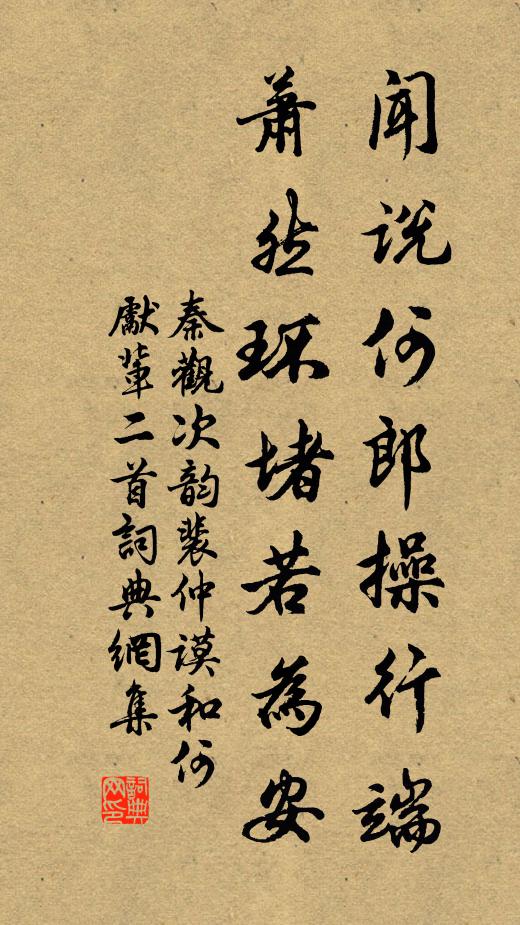 聞說何郎操行端
蕭然环堵若為安
秦觀次韵裴仲謨和何
獻輩二首詞典網集
詞典网印